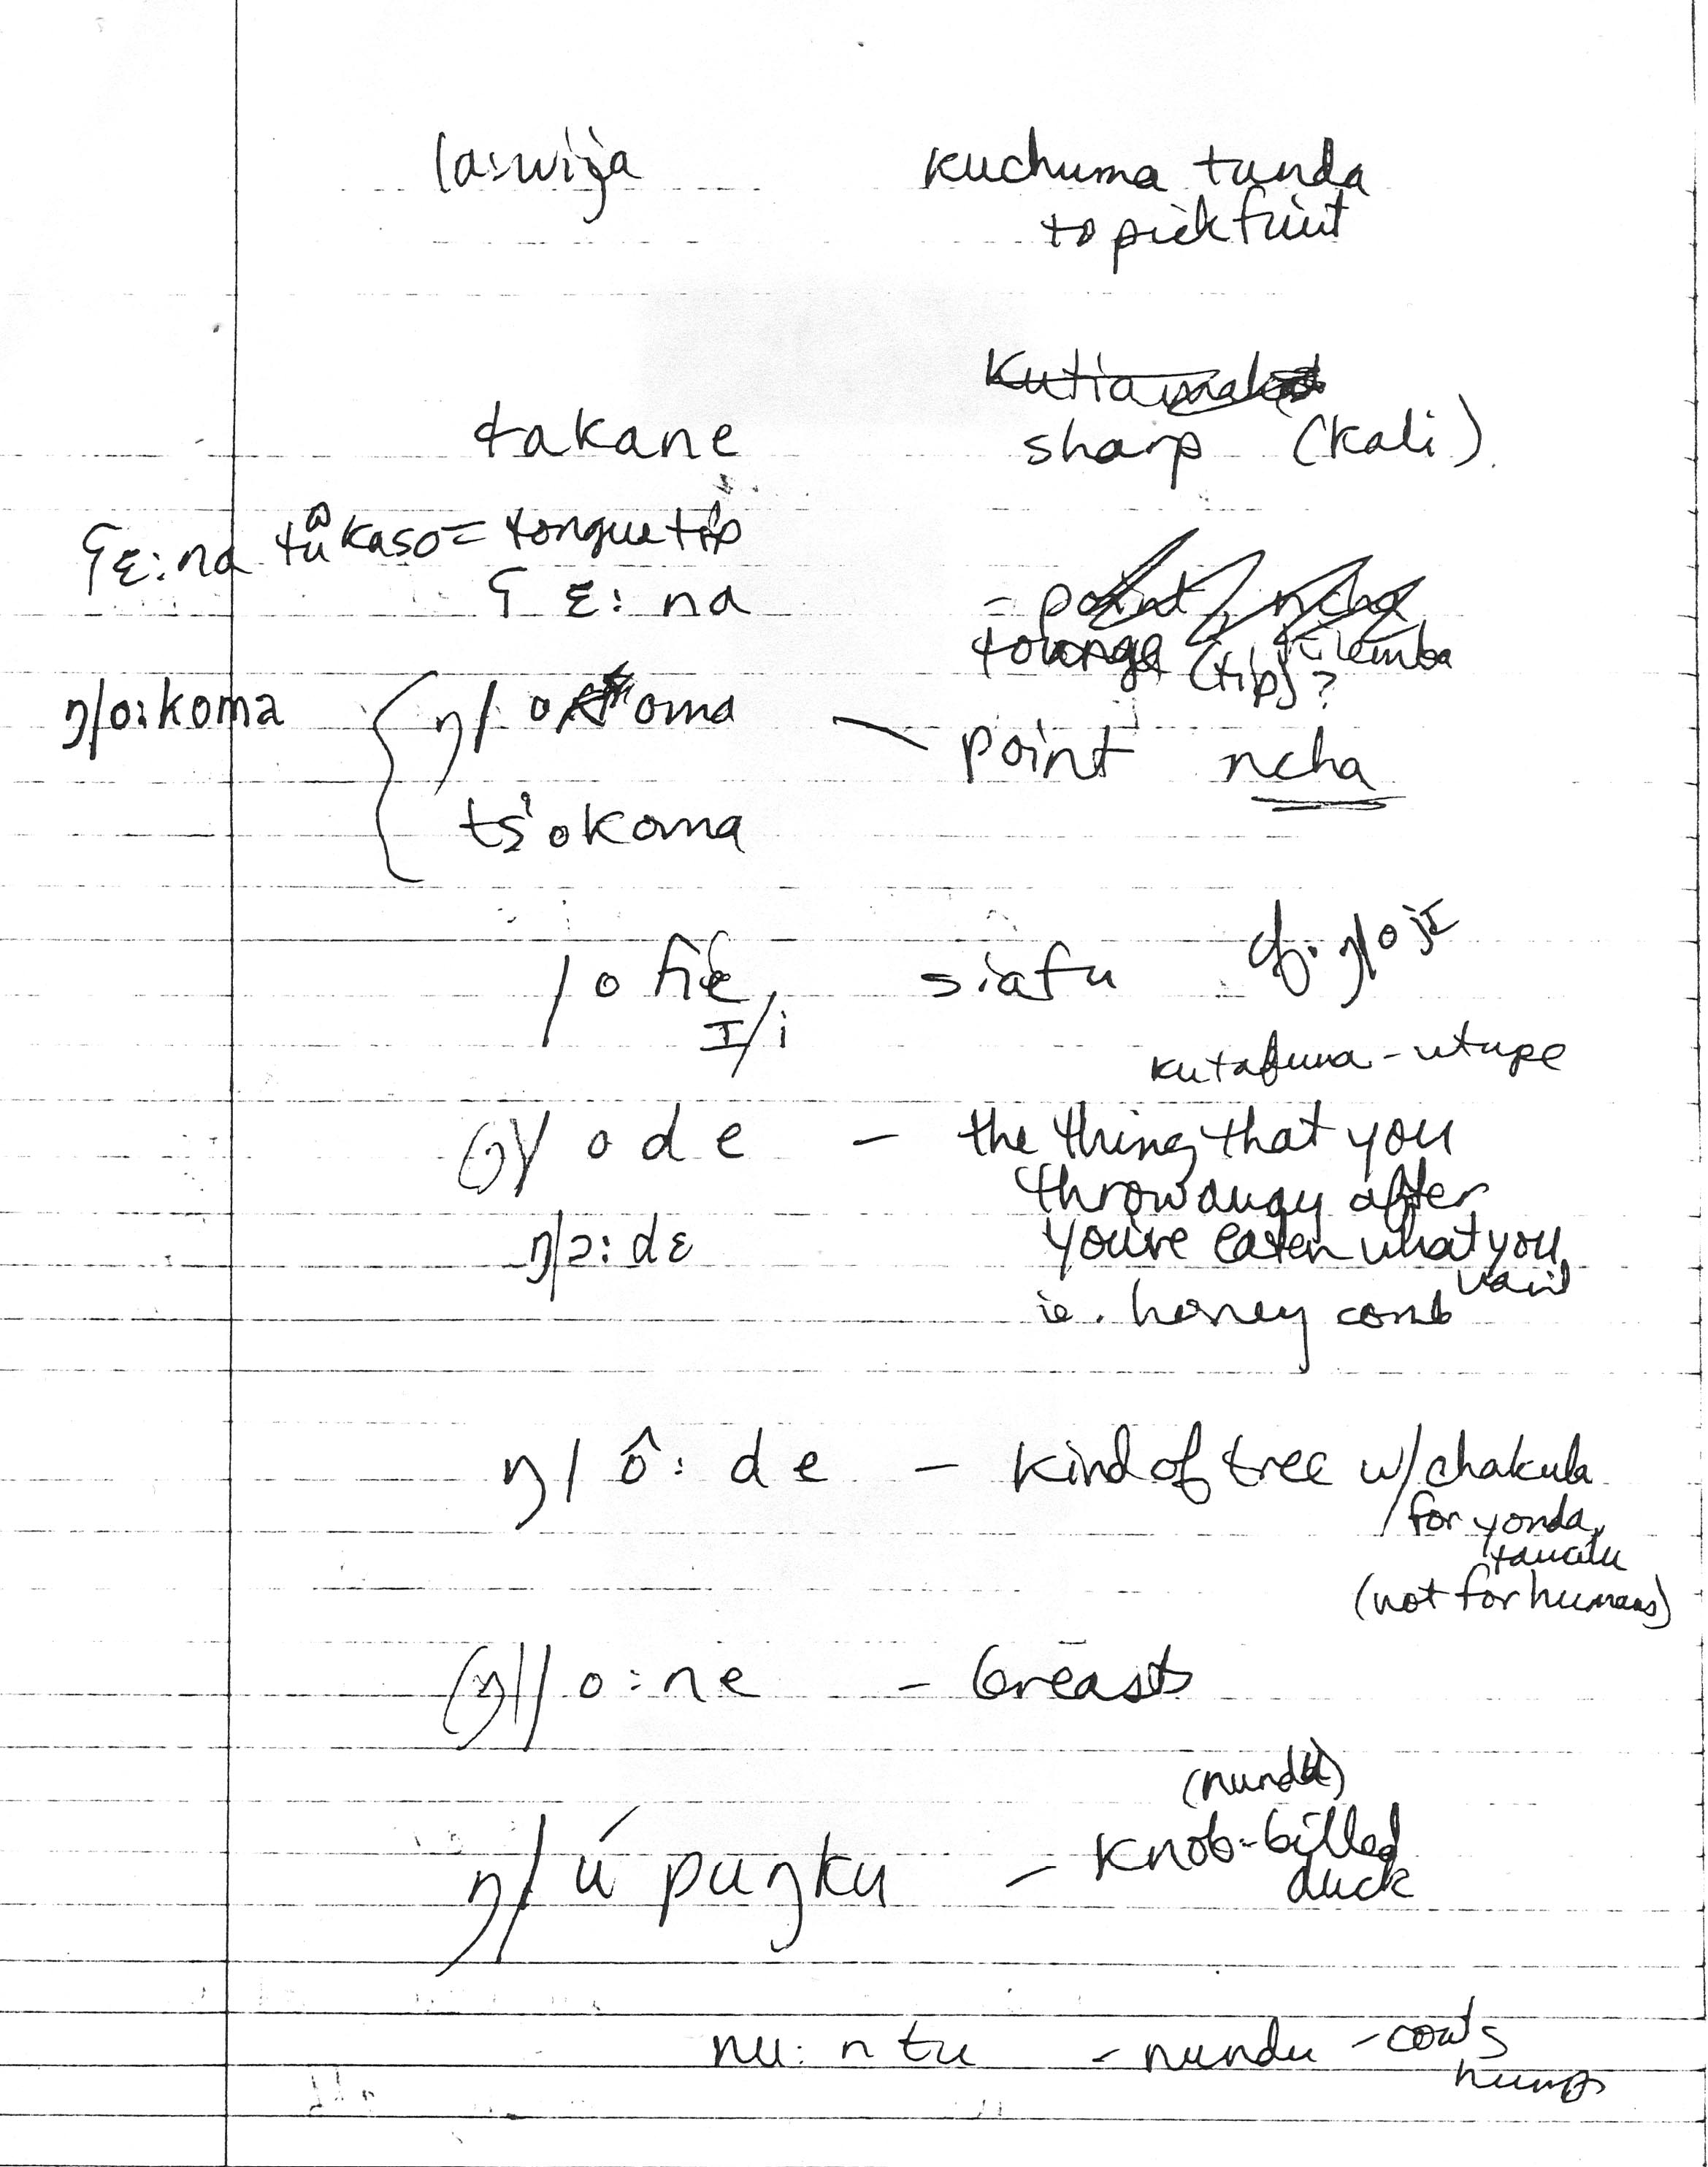 la:wija kuchuma tunda
to pick fruit
takane sharp (kali)
ʕɛ:na kaso = tongue tip
ʕɛ:na = point, ncha
(tip)? kilemba
ŋ|o:koma ŋ|okoma — point ncha
ts'okoma
|oɦe siafu cf. ŋ|ojɪ
ɪ/i
kutafuna - utupe
(ŋ)|ode — the thing that you
throw away after
ŋ|ɔ:dɛ you've eaten what you
want
ie. honey comb
ŋ|ô:de — kind of tree w/chakula
for yonda,
(not for humans)
(ŋ)||o:ne — breasts
(nundu)
ŋ|úpuŋku — knob-billed
duck
nu:ntu - nundu - cow's
hump